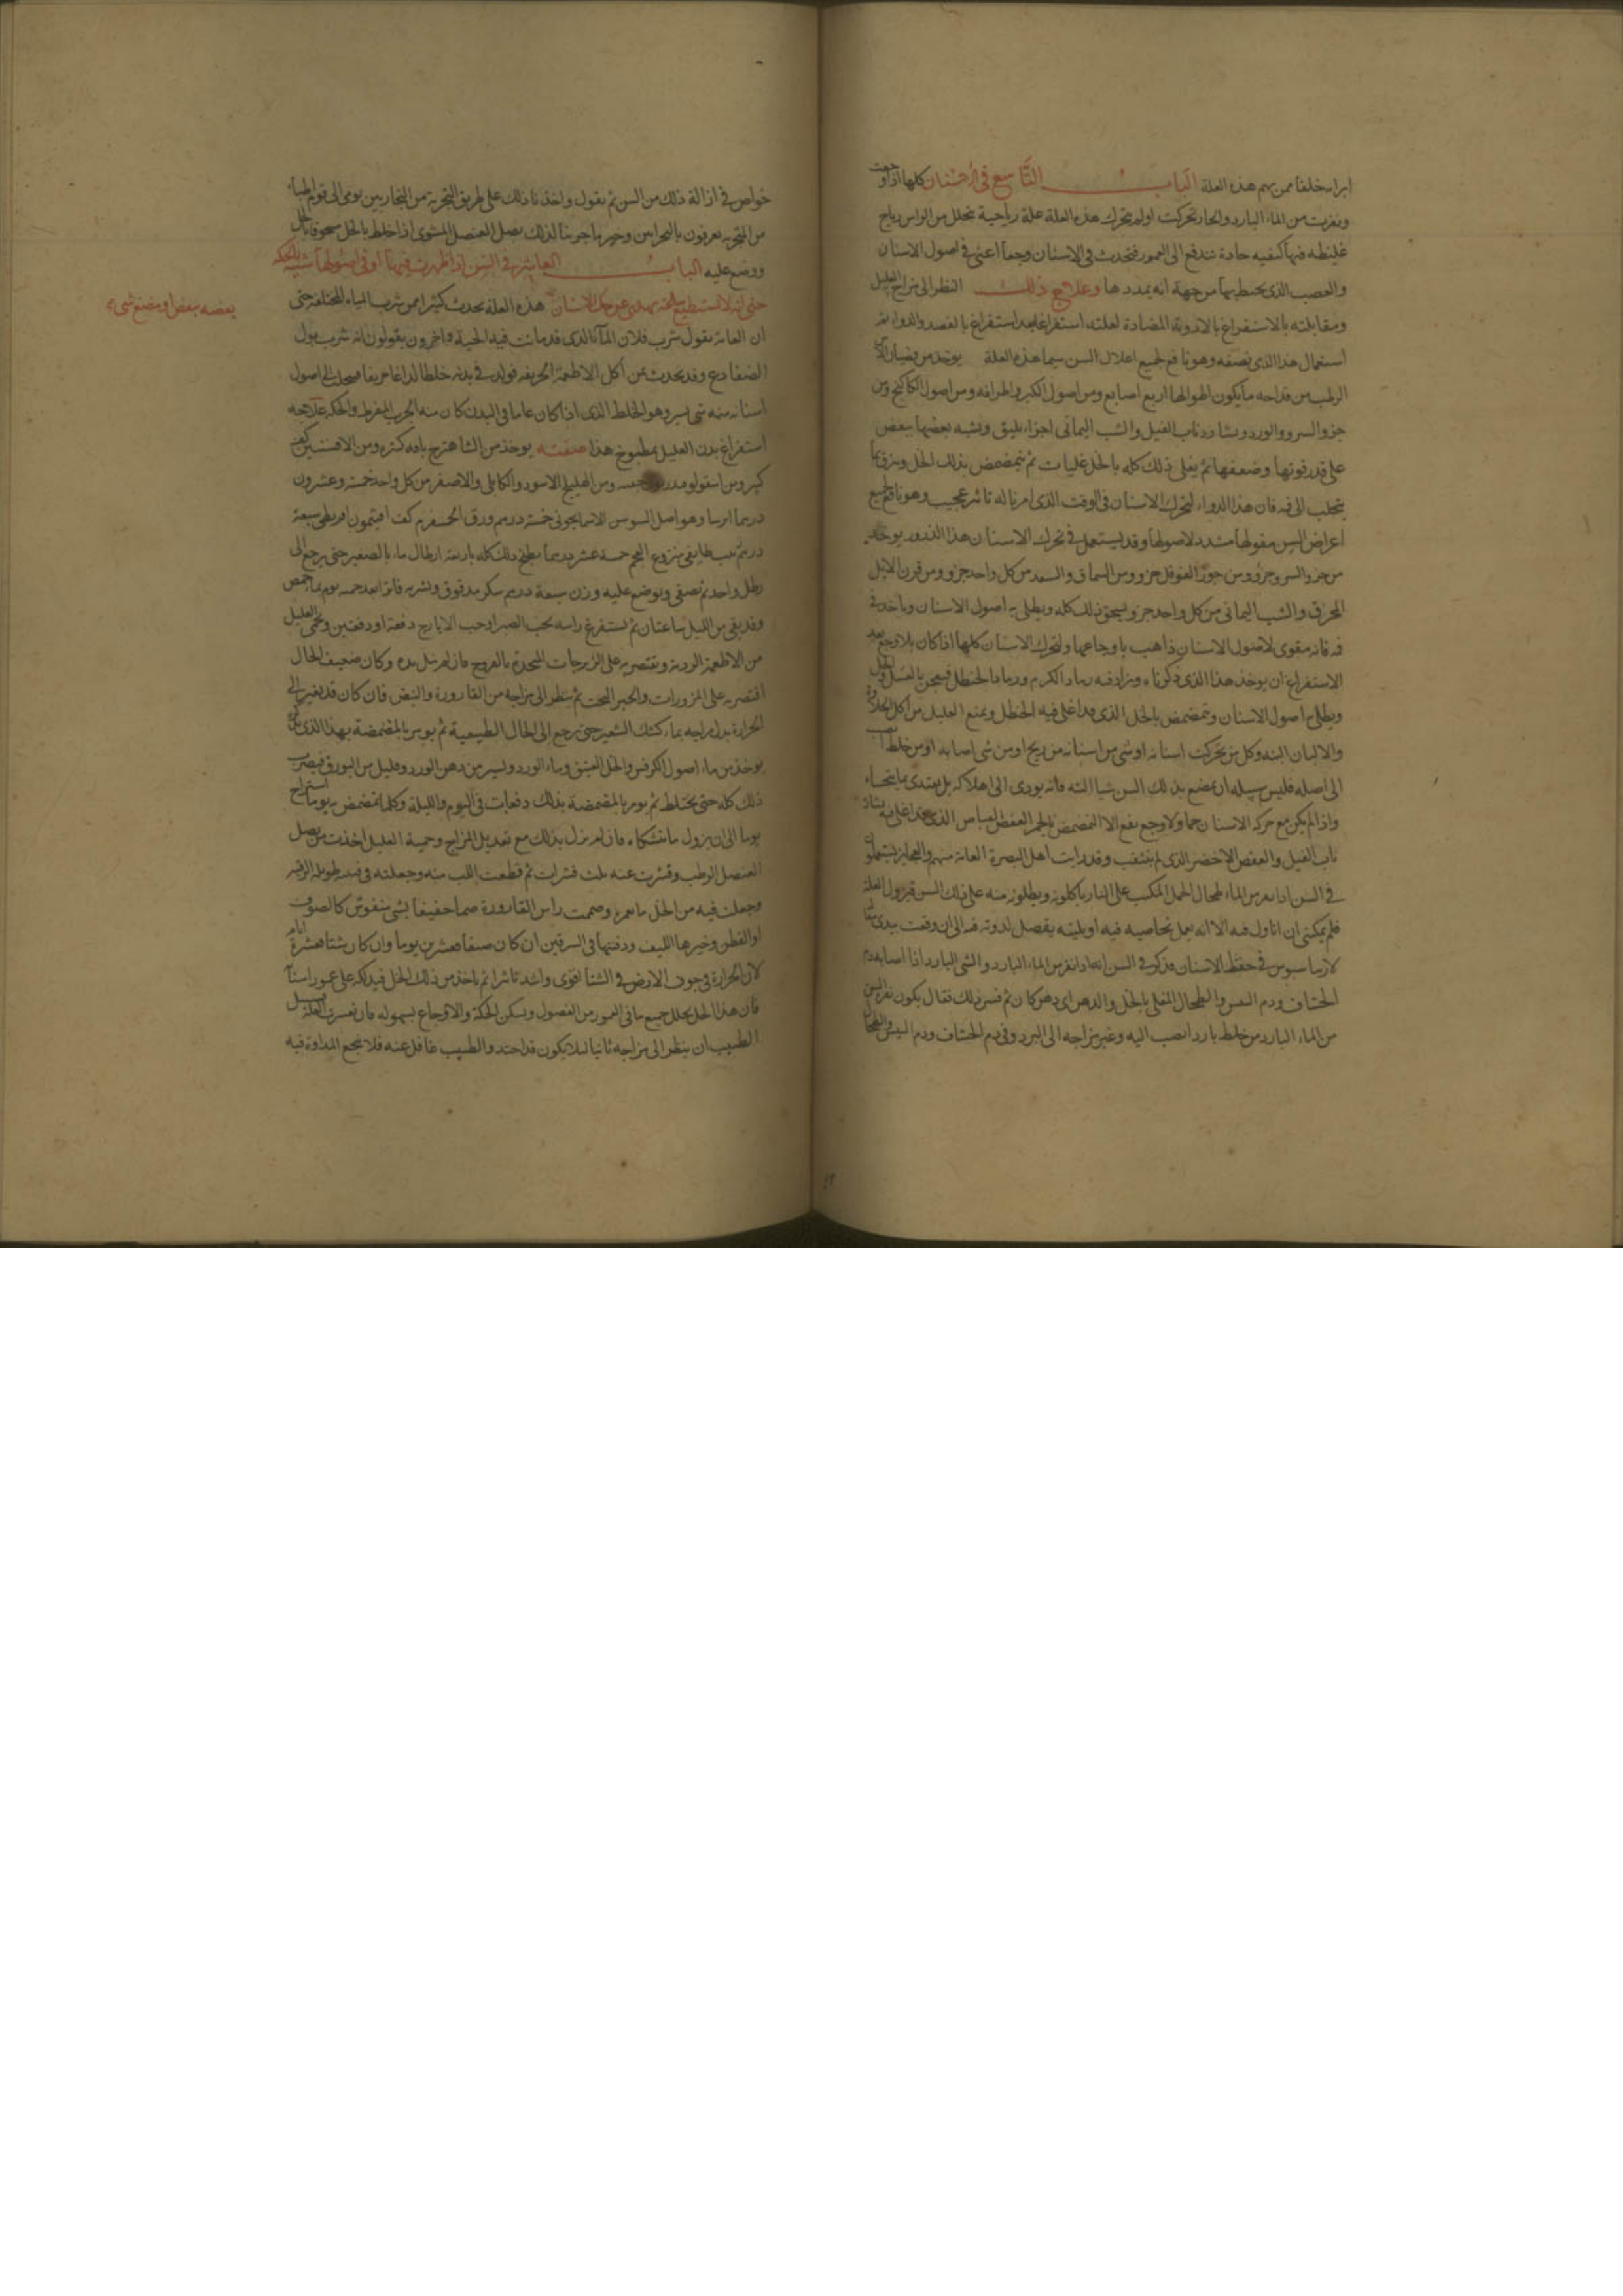 ابراه خلقا ممن بهم هذه العلة الباب التاسع في الاسنان كلها اذا وجعت
وضربت من الماء البارد والحار تحركت او لم تتحرك هذه العلة علة رياحية تتحلل من الراس رياح
غليظه فيها كيفيه حادة تندفع الى العمور فتحدث في الاسنان وجعا اعنى في اصول الاسنان
والعصب الذي يحيط بها من جهة انه يمددها وعلاج ذلك النظر الى مزاج العليل
ومقابلته بالاستفراغ بالادوية المضادة لعلته استفراغا بعد استفراغ بالفصد والدواء ثم
استعمال هذا الذي نصفه وهو نافع لجميع اعلال السن سيما هذه العلة يوخذ من قضبان
الرطب من قداحه ما يكون طولها اربع اصابع ومن اصول الكبر واطرافه ومن اصول الكاكنج ومن
جوز السرو والورد ونشارة ناب الفيل والشب اليماني اجزاء يليق ونسبه بعضها ببعض
على قدر قوتها وضعفها ثم يغلى ذلك كله بالخل غليات ثم يتمضمض بذلك الخل ويرق ما
يتحلب الى فيه فان هذا الدواء لتحرك الاسنان في الوقت الذي امرنا له تاثير عجيب وهو نافع لجميع
اعراض السن مقولها مشدد لاصولها وقد يستعمل في تحرك الاسنان هذا الذرور يوخذ
من جوز السرو جزو ومن جوز الفوفل جزو ومن السماق والسعد من كل واحد جزو ومن قرن الايل
المحرق والشب اليماني من كل واحد جزو يسحق ذلك كله ويطلى به اصول الاسنان وياخذ في
فيه فانه مقوى لاصول الاسنان ذاهب باوجاعها ولتحرك الاسنان كلها اذا كان بلا وجع بعد
الاستفراغ ان يوخذ هذا الذي ذكرناه ويزاد فيه رماد الكرم ورماد الحنظل فيعجن بالعسل والخل
ويطلى اصول الاسنان ويتمضمض بالخل الذي قد اغلى فيه الحنظل ويمنع العليل من اكل الحلاوة
والالبان البتة وكل من تحركت اسنانه او شي من اسنانه من ريح او من شي اصابه او من خلط انصب
الى اصله فليس سبيله ان يمضغ بذلك السن شيا البته فانه يودى الى اهلاكه بل يغتذى بما يتحساه
واذا لم يكن مع حركة الاسنان حما ولا وجع نفع الا التمضمض بالخمر العفص القباض الذي قد اغلى فيه نشارة
ناب الفيل والعفص الاخضر الذي لم يثقب وقد رايت اهل البصرة العامة منهم والعجايز يستعملون
في السن اذا ضربت من الماء طحال الحمل المكبب على النار ياكلونه ويطلون منه على ذلك السن فيزول العلة
فلم يمكني ان اتاول فيه الا انه يعمل بخاصيه فيه او بليته يفصل لدوته فيه الى ان وقعت بيدي مقالة
لارساسيوس في حفظ الاسنان فذكر في السن انها اذا نفرت من الماء البارد والشي البارد اذا اصابه دم
الخشاف ودم التيس والطحال المقلى بالخل والدهن اى دهن كان ثم فسر ذلك فقال يكون نفرة السن
من الماء البارد من خلط بارد انصب اليه وغير مزاجه الى البرد وفي دم الخشاف ودم التيس والطحال
خواص في ازالة ذلك من السن ثم نقول واخذنا ذلك على طريق التجربة من التجاربيين يومى الى قوم اطباء
من التجربه يعرفون بالبحراس وخير ما جربنا لذلك بصل العنصل المشوى اذا خلط بالخل مسحوقا بالخل
ووضع عليه الباب العاشر في السن اذا ظهرت فيها او في اصولها شبيه بالحكه
حتى انه لا يستطيع عن حك الاسنان هذه العلة تحدث كثيرا ممن شرب المياه المختلفة حتى
بعضه بعض او مضغ شيء
ان العامة تقول شرب فلان الماء الذي قد ماتت فيه الحية واخرون يقولون انه شرب بول
الضفادع وقد يحدث ممن اكل الاطعمة الحريفه فولد في بدنه خلطا لداغا حريفا فينجلب الى اصول
اسنانه منه شي يسير وهو الخلط الذي اذا كان عاما في البدن كان منه الجرب المفرط والحكه علاجه
استفراغ بدن العليل بمطبوخ هذا صفته يوخذ من الشاهترج باقه كبره ومن الافسنتين كف
كبير ومن ومن الهليلج الاسود والكابلي والاصفر من كل واحد خمسة وعشرون
درهما ايرسا وهو اصل السوسن الاسمانجوني خمسة درهم ورق كف افتيمون اقريطي سبعة
درهم زبيب طايفي منزوع العجم خمسة عشر درهما يطبخ ذلك كله باربعة ارطال ماء بالصغير حتى يرجع الى
رطل واحد ثم يصفى ويوضع عليه وزن سبعة درهم سكر مدقوق ويشربه فاترا بعد خمسه يوم بماء حمص
وقد بقي من الليل ساعتان ثم يستفرغ راسه بحب الصبر او حب الايارج دفعة او دفعتين ويحمى العليل
من الاطعمة الردية ويقتصر به على الزيرباجات المتخذة بالفروج فان لم يبل بده وكان ضعيف الحال
اقتصر به على المزورات والخبز البحت ثم ينظر الى مزاجه من القارورة والنبض فان كان قد تغير الى
الحرارة بدل مزاجه بماء كشك الشعير حتى يرجع الى الحال الطبيعية ثم يومر بالمضمضة بهذا الذي
يوخذ من ماء اصول الكرفس والخل العتيق وماء الورد ويسير من دهن الورد وقليل من البورق فيضرب
ذلك كله حتى يختلط ثم يومر بالمضمضة بذلك دفعات في اليوم والليلة وكلما تمضمض به يوما استراح
يوما الى ان يزول ما تشكاه فان لم يزل بذلك مع تعديل المزاج وحمية العليل اخذت من بصل
العنصل الرطب وقشرت عنه ثلث قشرات ثم قطعت اللب منه وجعلته في
وجعلت فيه من الخل ما يغمره وصممت راس القارورة صما خفيفا بشي منفوش كالصوف
او القطن وخيرها الليف ودفنتها في السرقين ان كان صيفا فعشرين يوما وان كان شتا فعشرة ايام
لان الحرارة في جوف الارض في الشتا اقوى واشد تاثيرا ثم ياخذ من ذلك الخل فيدلكه على عمور اسنانه
فان هذا الخل يحلل جميع ما في العمور من الفضول ويسكن الحكة والاوجاع بسهوله فان تعسرت العلة فسبيل
الطبيب ان ينظر الى مزاجه ثانيا ليلا يكون قد احتد والطبيب غافل عنه فلا ينجع المداواة فيه